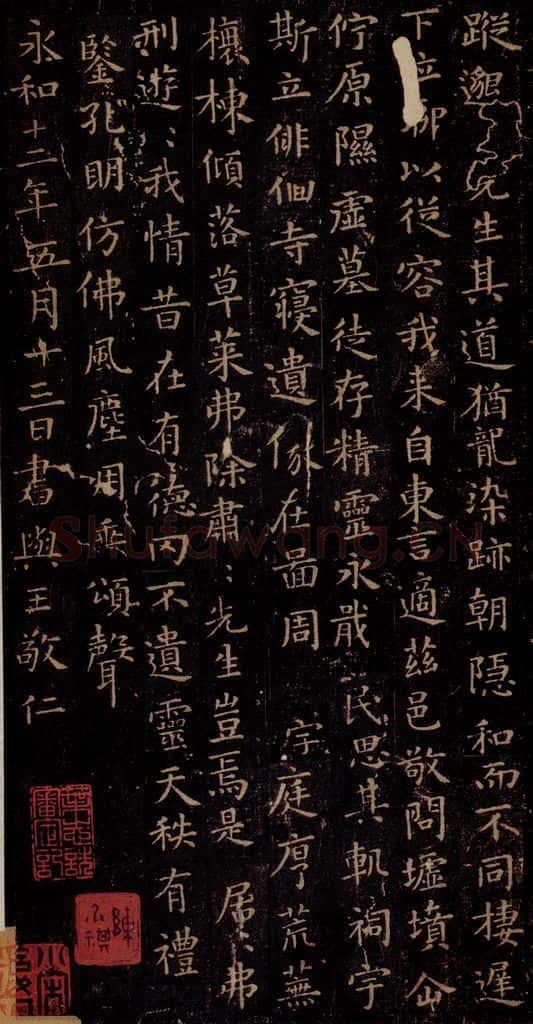 蹤邈先生其道猶龍染跡朝隱和而不同棲遲
下位聊以從容我来自東言適茲邑敬問墟墳企
佇原隰虛墓徒存精靈永戢民思其軌祠宇
斯立俳佪寺寑遺像在啚周宇庭序荒蕪
榱棟傾落草萊弗除肅〻先生豈焉是居〻弗
刑遊〻我情昔在有德罔不遺靈天秩有禮
鑒孔明仿佛風塵用垂頌聲
永和十二年五月十三日書與王敬仁
Shufawang.cn